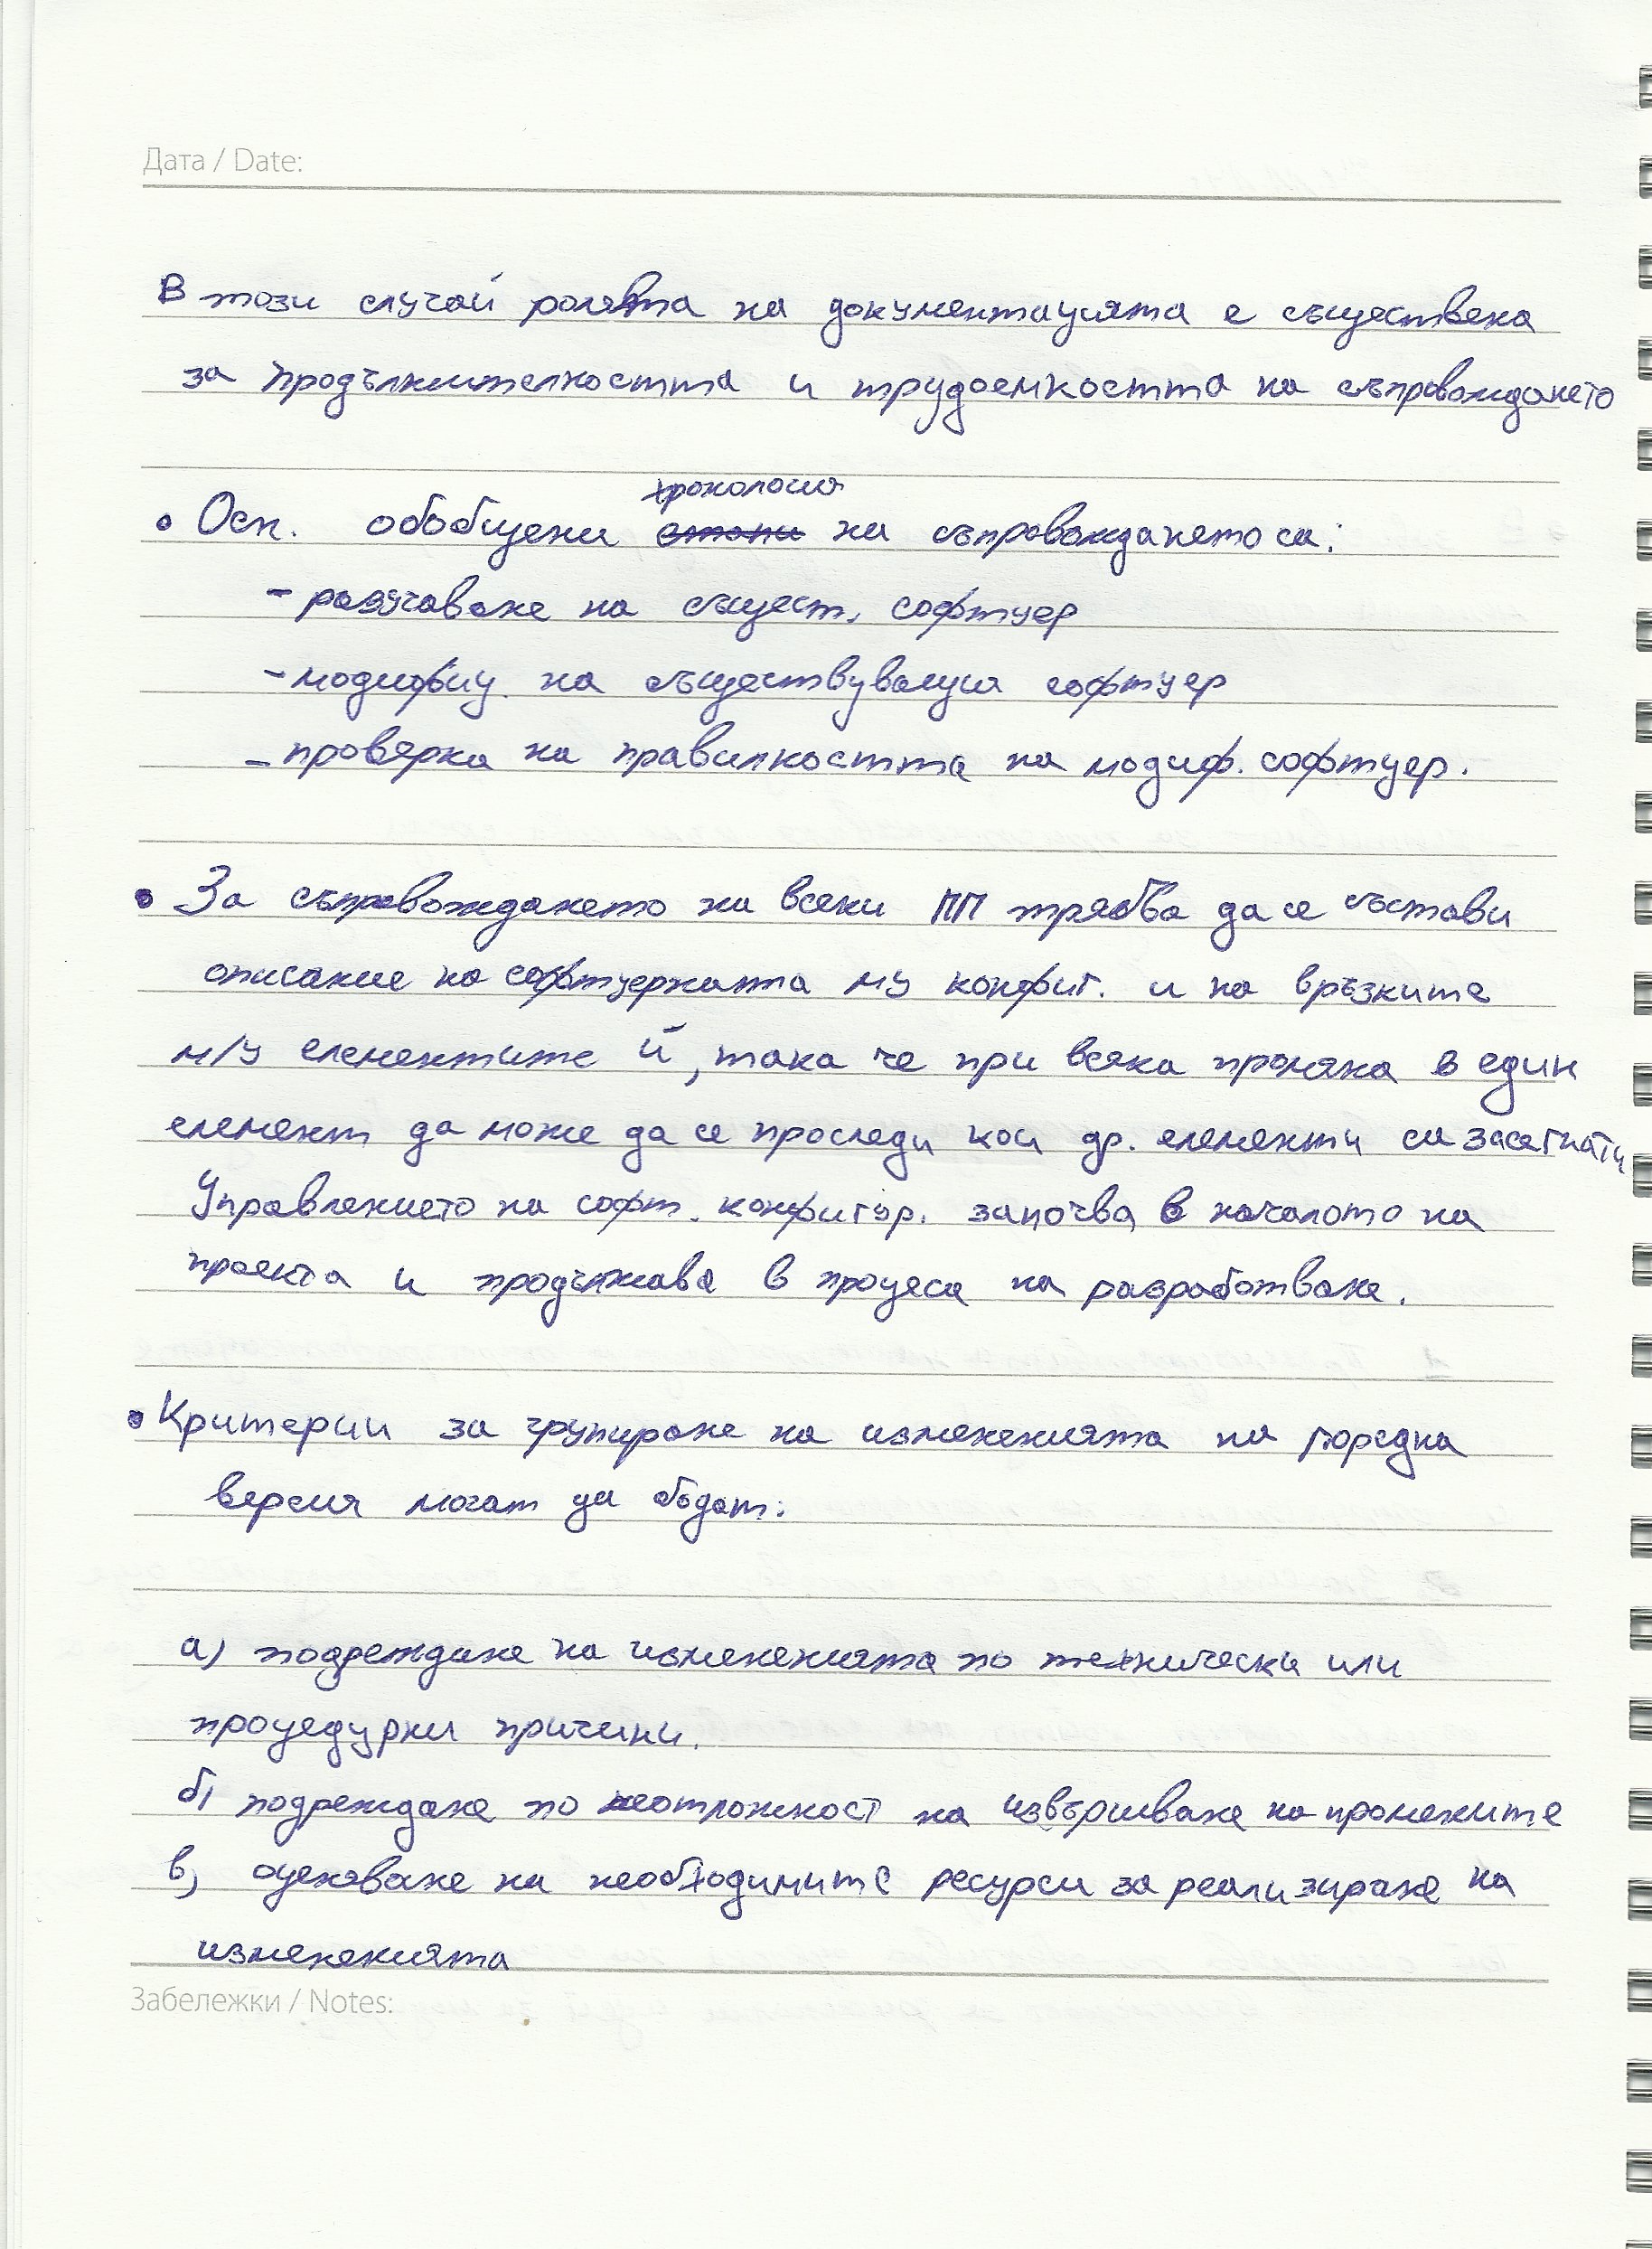 Дата / Date:
В този случай ролята на документацията е съществена
за продължителността и трудоемкостта на съпровождането
хронология
• Осн. обобщени етапи на съпровождането са:
- разучаване на същест. софтуер
- модифиц. на съществуващия софтуер
- проверка на правилността на модиф. софтуер.
• За съпровождането на всеки ПП трябва да се състави
описание на софтуерната му конфиг. и на връзките
м/у елементите ѝ, така че при всяка промяна в един
елемент да може да се проследи кои др. елементи са засегнати
Управлението на софт. конфигур. започва в началото на
проекта и продължава в процеса на разработване.
• Критерии за групиране на измененията на поредна
версия могат да бъдат:
а) подреждане на измененията по технически или
процедурни причини.
б) подреждане по неотложност на извършване на промените
в) оценяване на необходимите ресурси за реализиране на
измененията
Забележки / Notes: